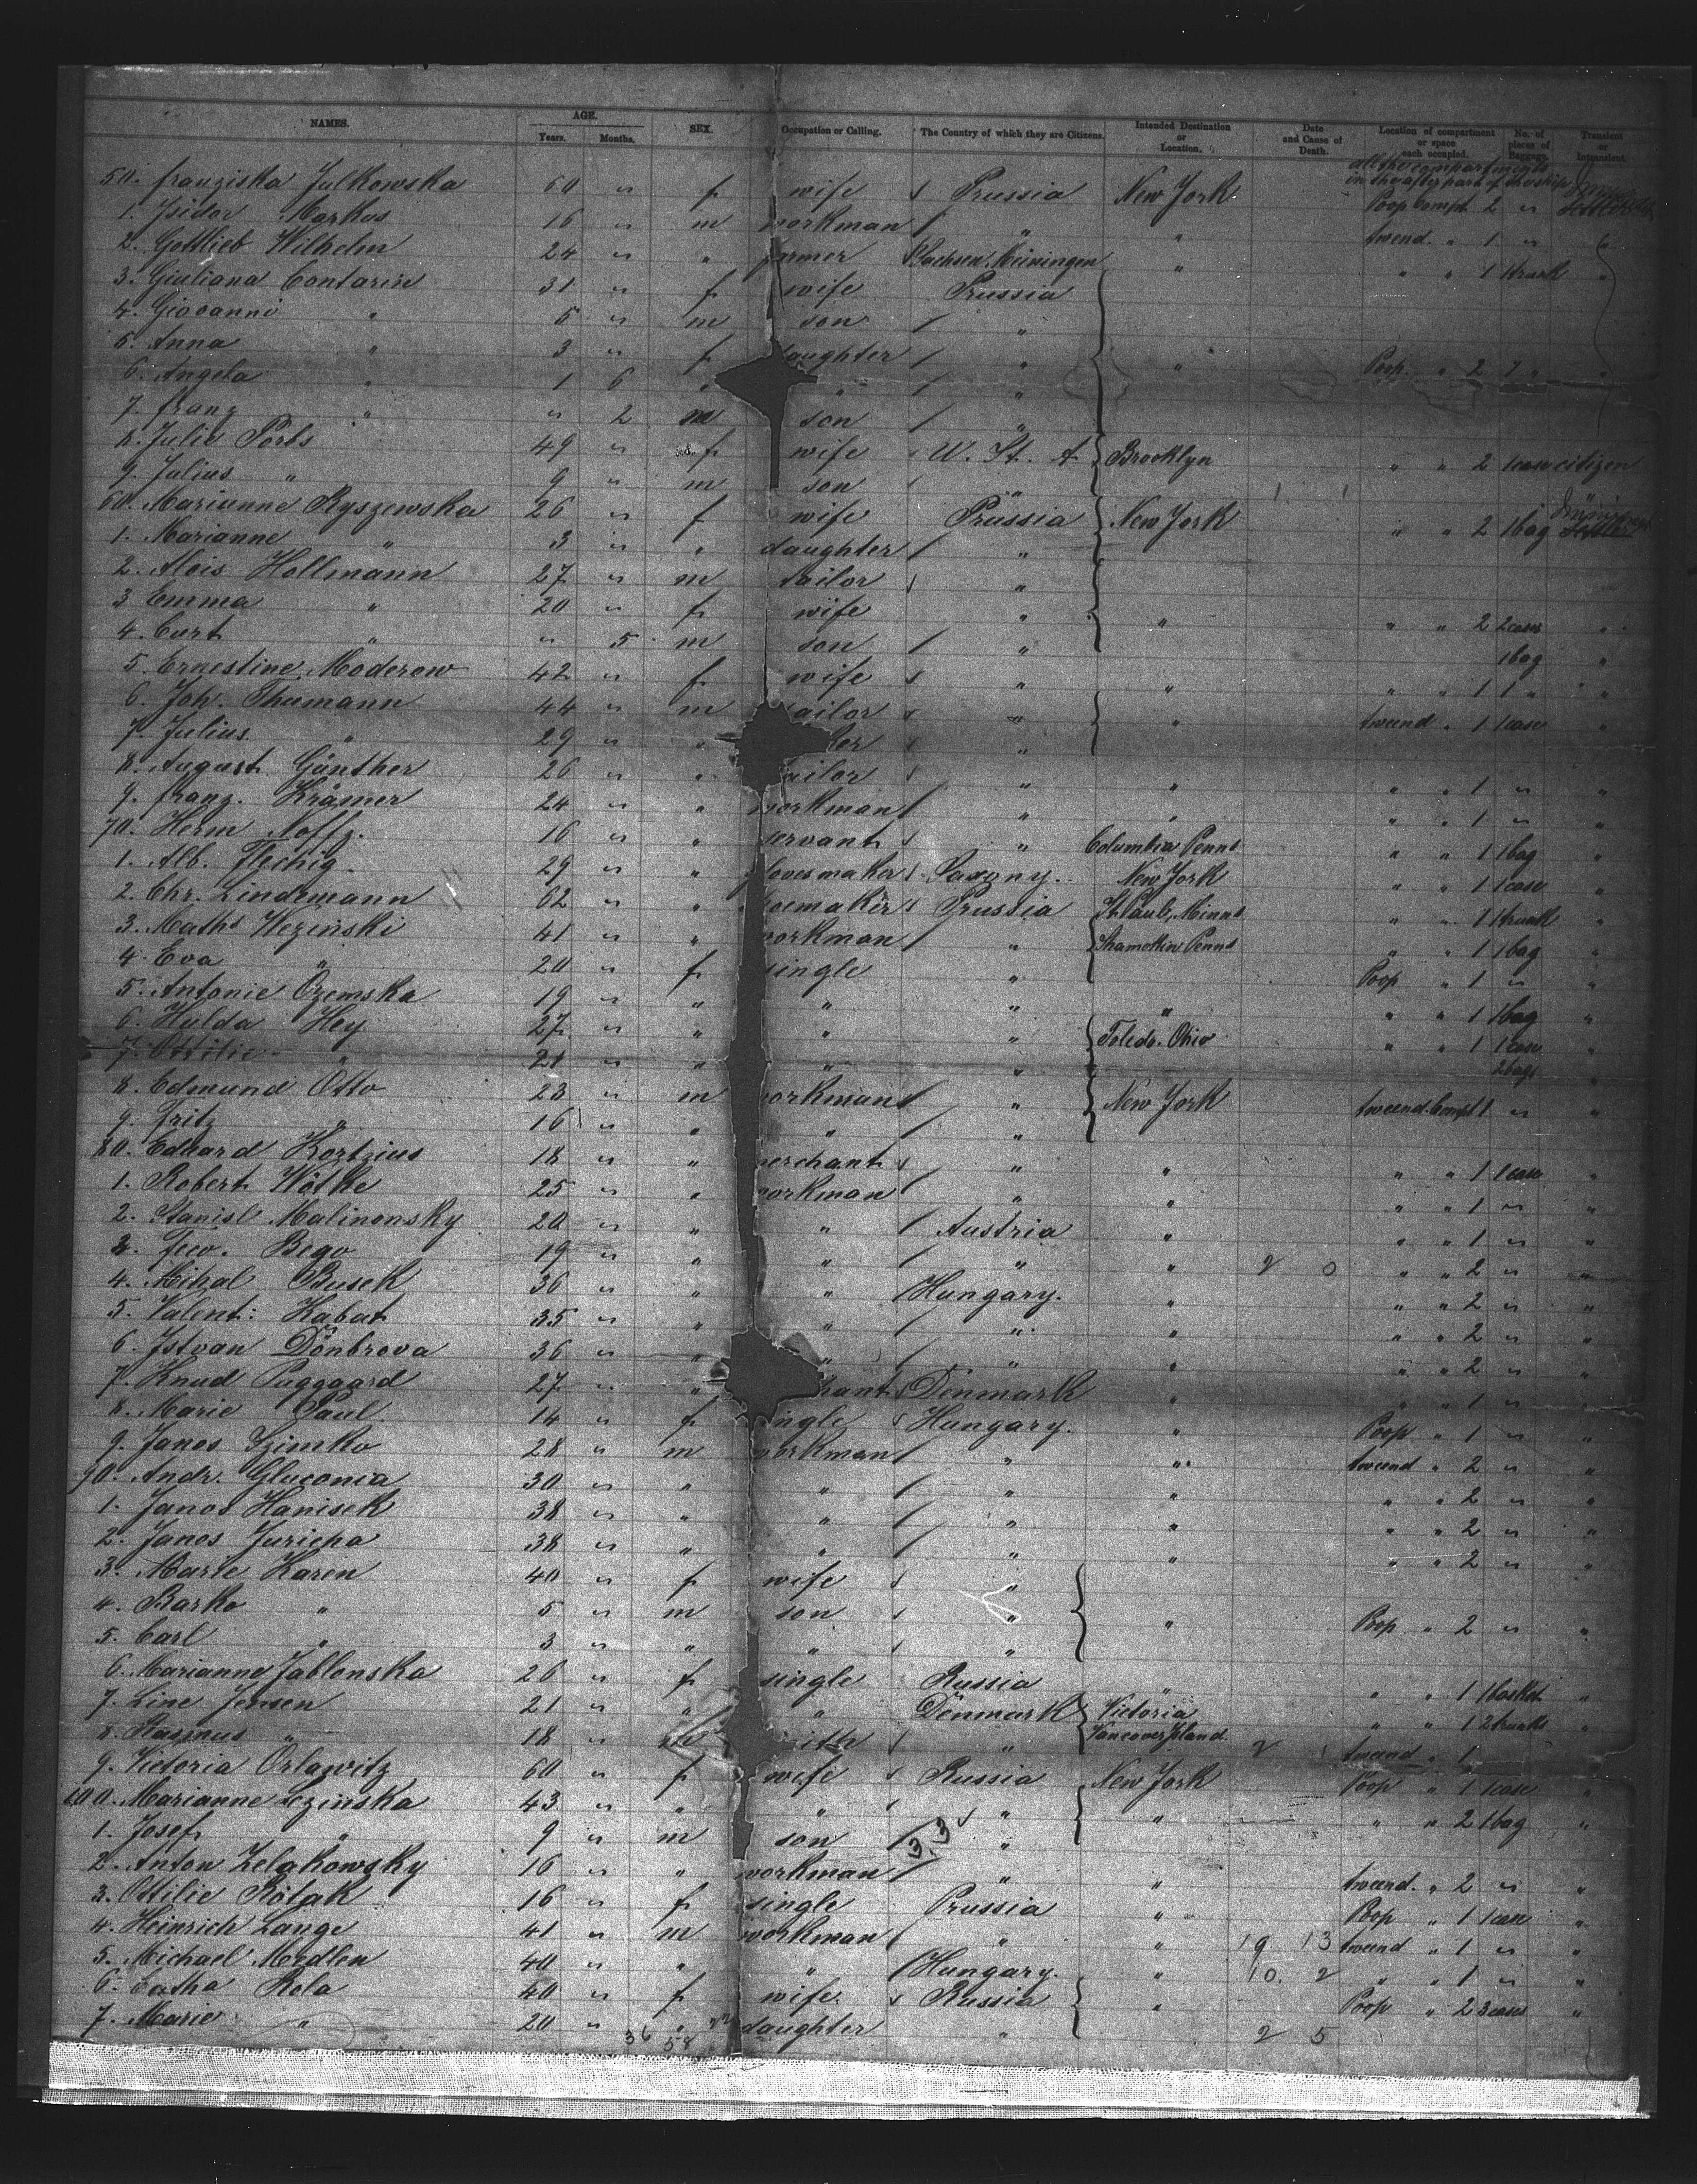 NAMES. AGE. Years. Months. SEX. Occupation or Calling. The Country of which they are Citizens. Intended Destination or Location. Date and Cause of Death. Location of compartment or space each occupied. No. of pieces of Baggage. Transient or Intransient.
all the compartments
in the after part of the ship
50. franziska Julkowska 60 " f wife Prussia New York Poop Compt. 2 "
1. Isidor Markus 16 " m workman " " tweend. " 1 " "
2. Gottlieb Wilhelm 24 " " farmer Sachsen Meiningen " " " 1 1 trunk "
3. Giuliana Contarin 31 " f wife Prussia
4. Giovanni " 5 " m son "
5. Anna " 3 " f daughter " " Poop. " 2 7 " "
6. Angela " 1 6 " " "
7. franz " " 2 m son "
8. Julie Perls 49 " f wife U. St. A Brooklyn " " 2 1 case citizen
9. Julius " 9 " m son "
60. Marianne Ryszewska 26 " f wife Prussia New York " " 2 1 bag
1. Marianne " 3 " " daughter "
2. Alois Hollmann 27 " m tailor "
3 Emma " 20 " f wife " " " " 2 2 cases "
4. Curt " " 5 m son " 1 bag "
5. Ernestine Moderow 42 " f wife " " " " 1 1 " "
6. Joh. Thumann 44 " m tailor " " tweend " 1 1 case "
7. Julius " 29 " "
8. August Günther 26 " " tailor " " " " 1 " "
9. franz. Krämer 24 " " workman " " " " 1 " "
70. Herm Noffz. 16 " " servant " Columbia Penns " " 1 1 bag "
1. Alb. Flechig 29 " " glovesmaker Saxony. New York " " 1 1 case "
2. Chr. Lindemann 62 " " Prussia St. Paul, Minns " " 1 1 trunk "
3. Maths Wezinski 41 " " workman " Shamokin Penns " " 1 1 bag "
4. Eva " 20 " f single " Poop " 1 " "
5. Antonie Ozemska 19 " " " " " " " 1 1 bag "
6. Hulda Hey 27 " " " " Toledo. Ohio " " 1 1 case "
7. Ottilie " 21 " " " " 2 bags
8. Edmund Otto 23 " m workmans " New York tweend. Compt 1 " "
9. Fritz " 16 " " " "
80. Eduard Kortzius 18 " " merchant " " " " 1 1 case "
1. Robert Wötke 25 " " workman " " " " 1 " "
2. Stanisl Malinonsky 20 " " " Austria " " " 1 " "
3. Bego 19 " " " " " 2 0 " " 2 " "
4. Mihal Busek 36 " " " Hungary. " " " 2 " "
5. Valent: Kabat 35 " " " " " " " 2 " "
6. Istvan Dönbrova 36 " " " " " " " 2 " "
7. Knud Puggaard 27 " " Denmark " " " 1 " "
8. Marie Paul 14 " f single Hungary. " Poop " 1 " "
9. Janos Szimko 28 " m workman " " tweend " 2 " "
90. Andr. Gluconia 30 " " " " " " " 2 " "
1. Janos Hanisek 38 " " " " " " " 2 " "
2. Janos Juricha 38 " " " " " " " 2 " "
3. Marie Karen 40 " f wife "
4. Barko " 5 " m son " " Poop " 2 " "
5. Carl " 3 " " " "
6. Marianne Jablonska 26 " f single Russia " " " 1 1 basket "
7. Line Jensen 21 " " " Denmark Victoria " " 1 2 trunks "
8. Rasmus " 18 " m " Vancover Island tweend " 1
9. Victoria Orlawitz 60 " f wife Russia New York Poop " 1 1 case "
100. Marianne Lezinska 43 " " " " " " " 2 1 bag "
1. Josef " 9 " m son "
2. Anton Zelakowsky 16 " " workman " " tweend. " 2 " "
3. Ottilie Rölak 16 " f single Prussia " Poop " 1 1 case "
4. Heinrich Lange 41 " m workman " " 19 13 tweend " 1 " "
5. Michael Medlen 40 " " " Hungary. " 10. 2 " " 1 " "
6. Catha Rela 40 " f wife. Russia " Poop " 2 3 cases "
7. Marie " 20 " " daughter " 2 5
36 58